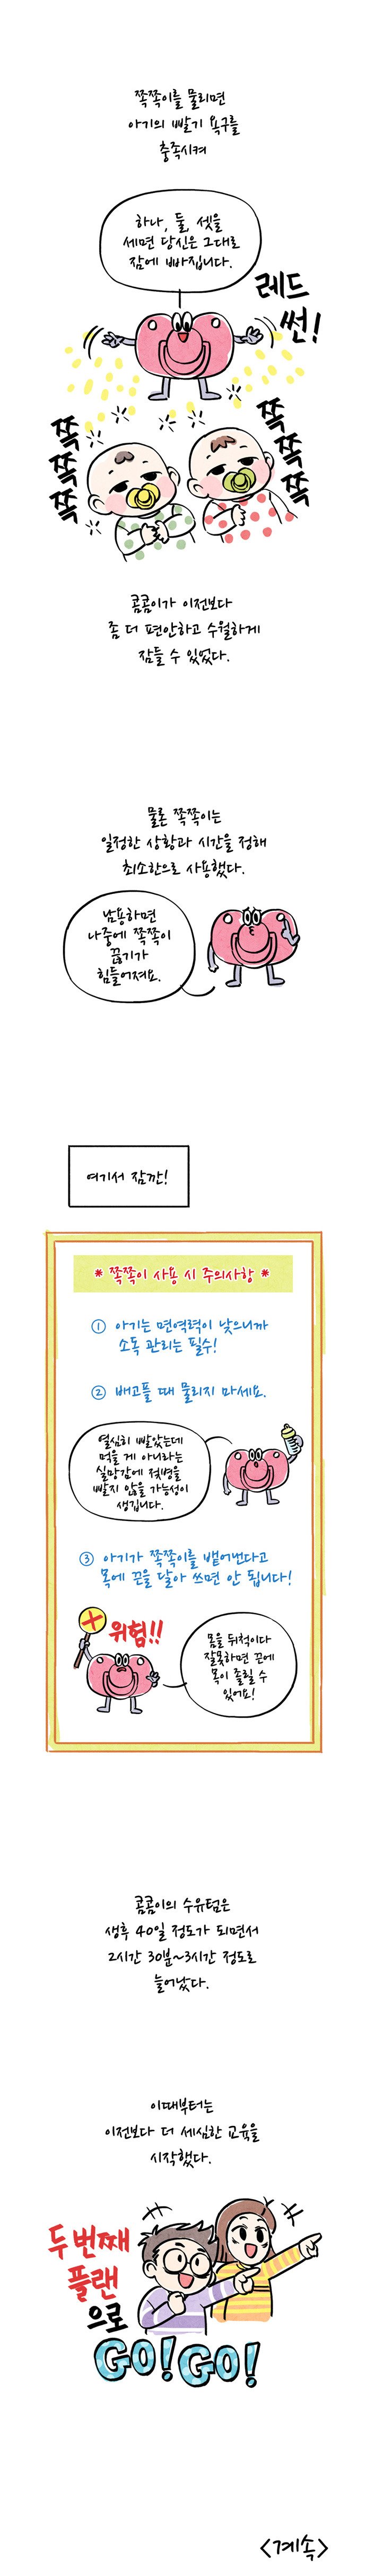 쪽쪽이를 물리면
아기의 빨기 욕구를
충족시켜
하나, 둘, 셋을
세면 당신은 그대로
잠에 빠집니다.
레드
썬!
쪽
쪽
쪽
쪽
쪽
쪽
콤콤이가 이전보다
좀 더 편안하고 수월하게
잠들 수 있었다.
물론 쪽쪽이는
일정한 상황과 시간을 정해
최소한으로 사용했다.
남용하면
나중에 쪽쪽이
끊기가
힘들어져요.
여기서 잠깐!
* 쪽쪽이 사용 시 주의사항 *
① 아기는 면역력이 낮으니까
소독 관리는 필수!
② 배고플 때 물리지 마세요.
열심히 빨았는데
먹을 게 아니라는
실망감에 젖병을
빨지 않을 가능성이
생깁니다.
③ 아기가 쪽쪽이를 뱉어낸다고
목에 끈을 달아 쓰면 안 됩니다!
위험!!
몸을 뒤척이다
잘못하면 끈에
목이 졸릴 수
있어요!
콤콤이의 수유텀은
생후 40일 정도가 되면서
2시간 30분~3시간 정도로
늘어났다.
이때부터는
이전보다 더 세심한 교육을
시작했다.
두 번째
플랜
으로
GO! GO!
<계속>